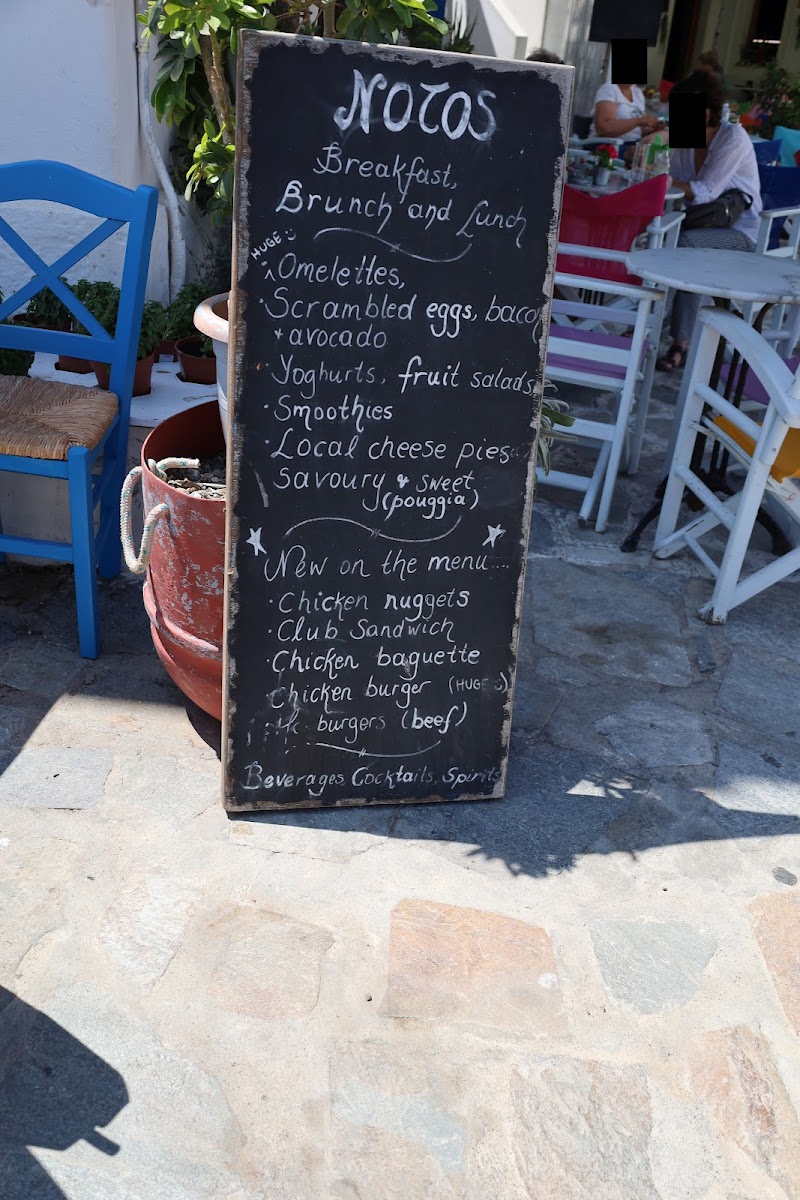 NOTOS
Breakfast,
Brunch and Lunch
HUGE
Omelettes,
· Scrambled eggs, bacon
+ avocado
· Yoghurts, fruit salads
· Smoothies
· Local cheese pies
savoury & sweet
(pouggia)
New on the menu....
· Chicken nuggets
· Club Sandwich
· Chicken baguette
· Chicken burger (HUGE)
burgers (beef)
Beverages, Cocktails, Spirits